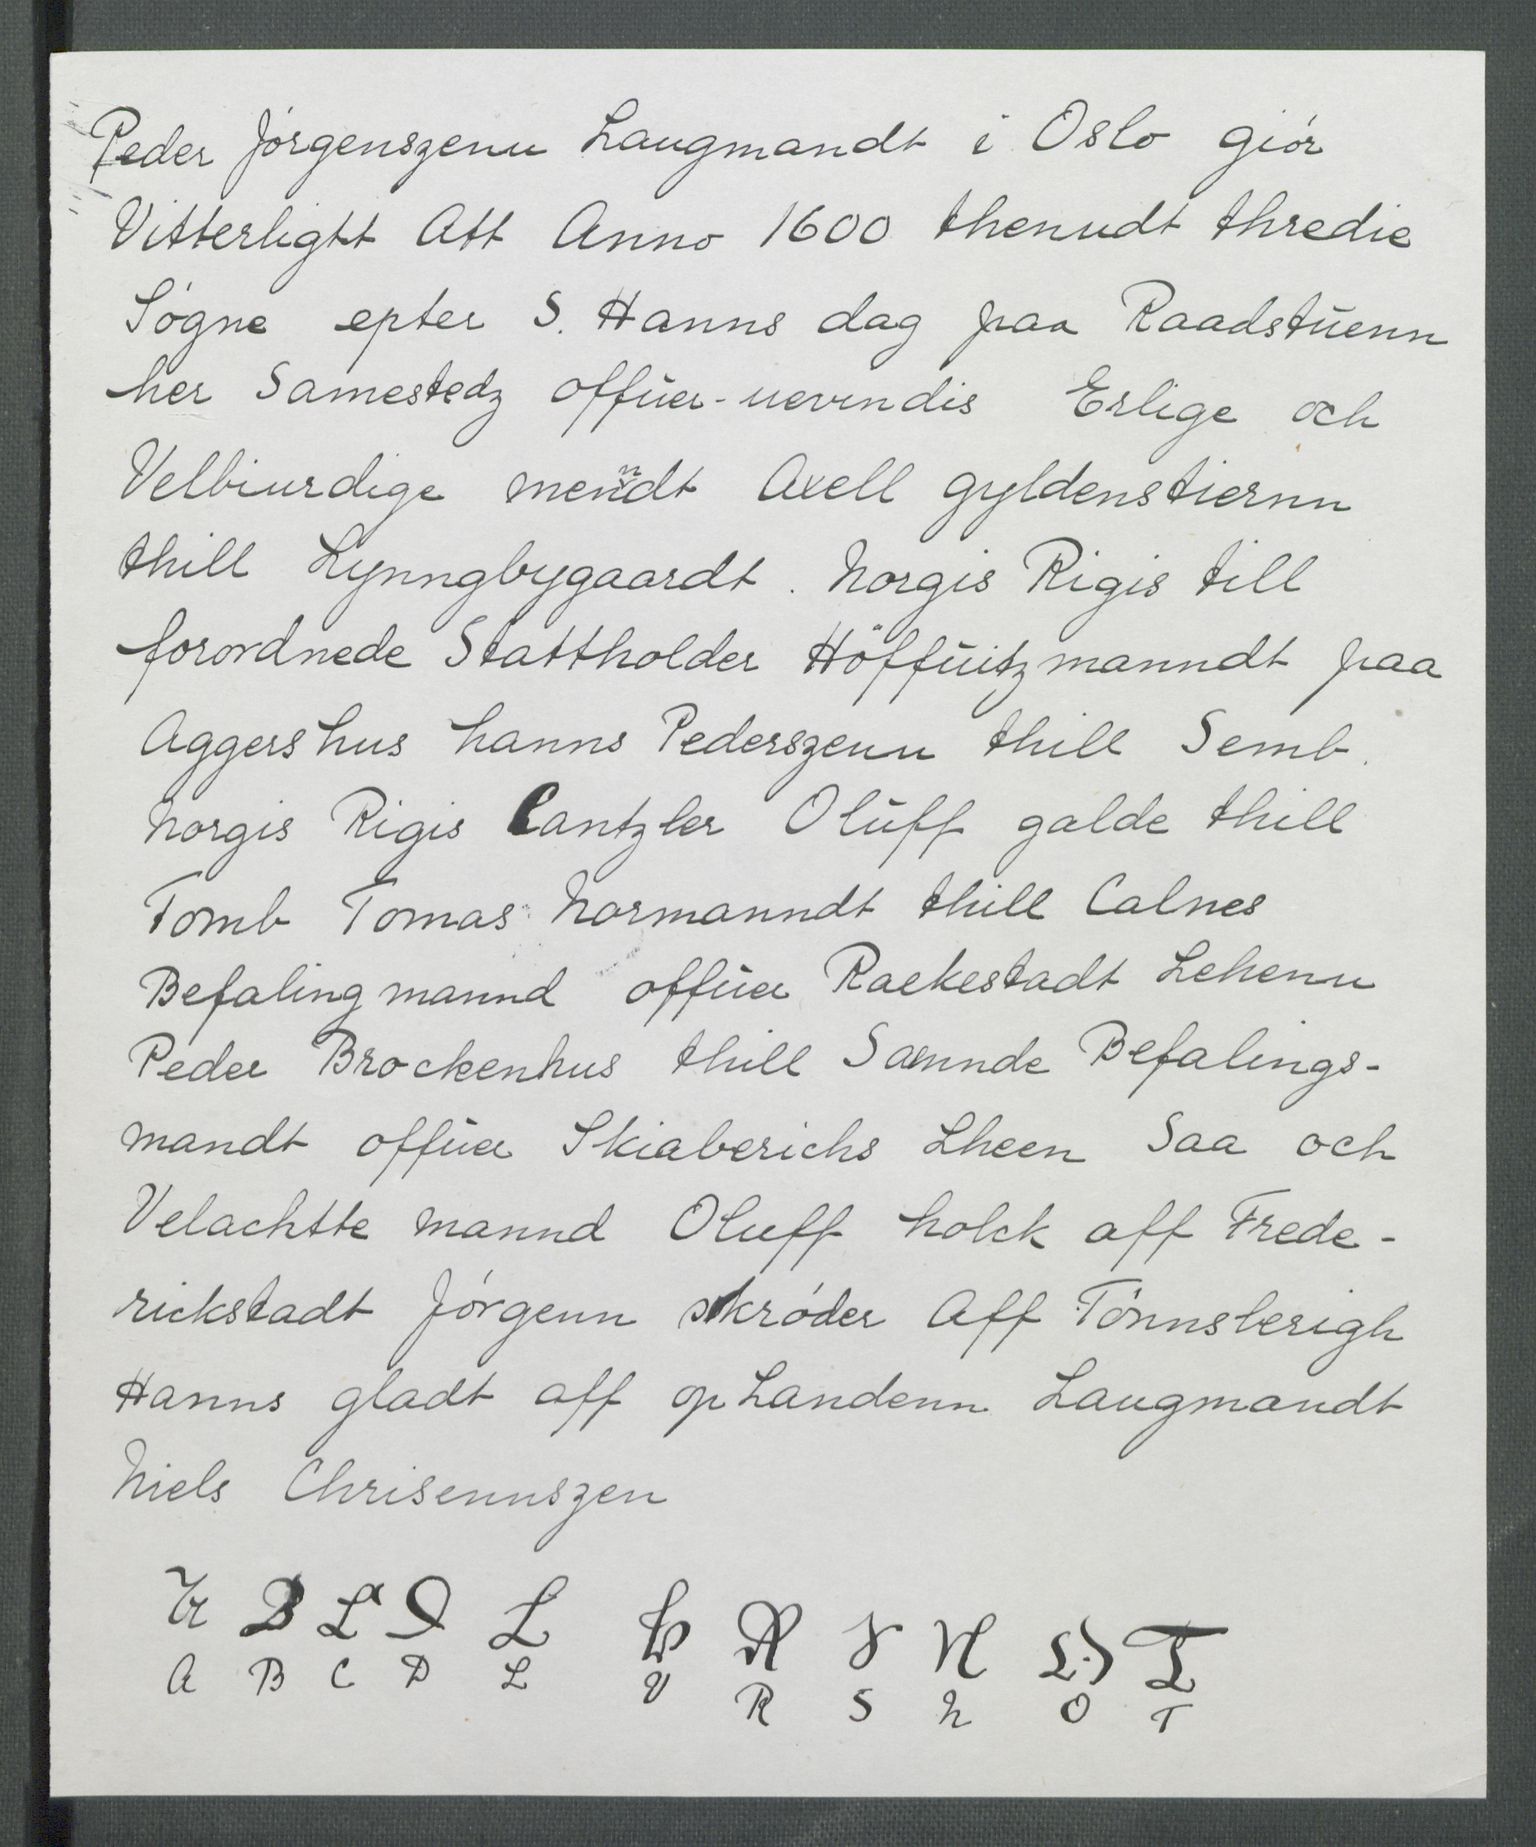 Peder Jórgenszenn Laugmandt i Oslo giór
Vitterligtt Att Anno 1600 thenndt thredie
Sógne epter S. Hanns dag paa Raadstŭenn
her Samestedz offŭer-uerendis Erlige och
Velbiurdige menndt Axell gyldenstiernn
thill Lynngbygaardt. Norgis Rigis till
forordnede Stattholder Höffŭitzmanndt paa
Aggershus hanns Pederszenn thill Semb.
Norgis Rigis Cantzler Olŭff galde thill
Tomb Tomas Normanndt thill Calnes
Befalingmannd offŭer Rackestadt Lehenn
Peder Brockenhus thill Sannde Befalings-
mandt offŭer Skiaberichs Lheen Saa och
Velachtte mannd Oluff holck aff Frede-
rickstadt Jórgenn skróder Aff Tónnsberigh
Hanns gladt aff opLandenn Laugmandt
Niels Chrisennszen
A B C D L V R S N O T
A B C D L V R S N O T